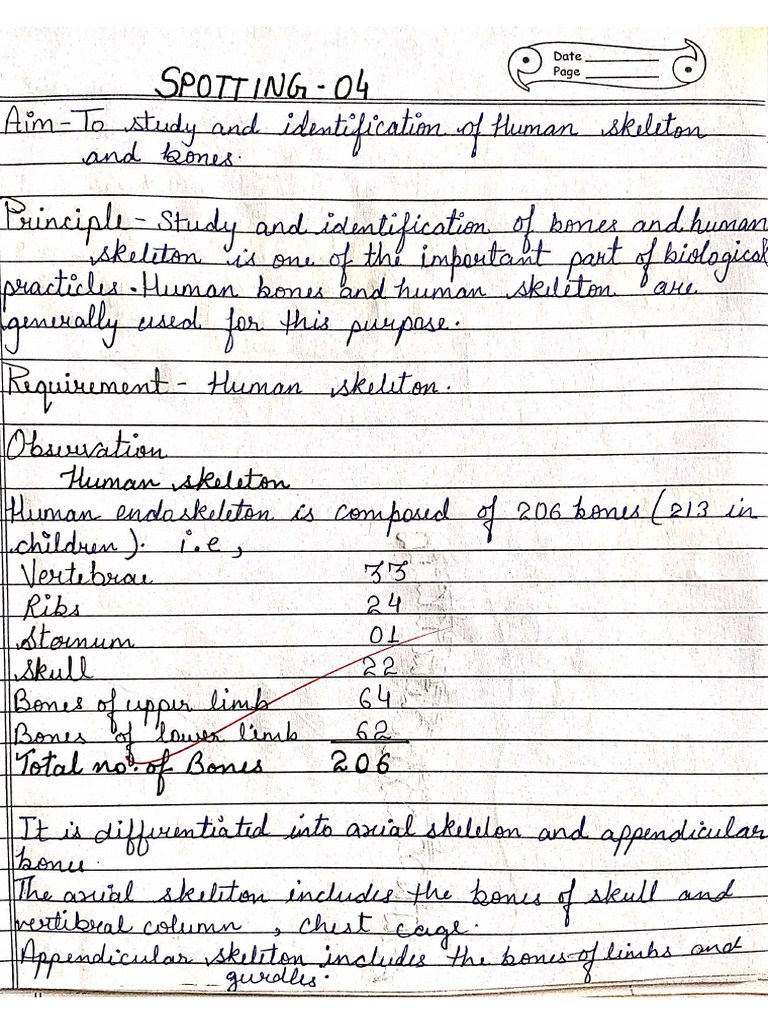 Date
Page
SPOTTING-04
Aim-To study and identification of Human skeleton
and bones.
Principle - Study and identification of bones and human
skeleton is one of the important part of biological
practicles. Human bones and human skeleton are
generally used for this purpose.
Requirement - Human skeleton.
Observation
Human skeleton
Human endoskeleton is composed of 206 bones (213 in
children). i.e,
Vertebrae 33
Ribs 24
Stornum 01
Skull 22
Bones of upper limb 64
Bones of lower limb 62
Total no. of Bones 206
It is differentiated into axial skeleton and appendicular
bones.
The axial skeleton includes the bones of skull and
vertibral column, chest cage.
Appendicular skeleton includes the bones of limbs and
gurdles.